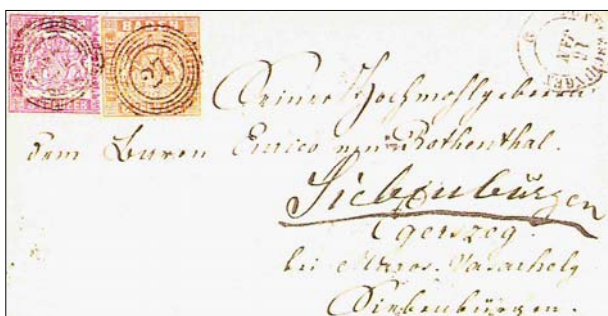 BADEN
27
Seiner Hochwohlgeboren
dem Baron Enrico von Rothenthal.
Siebenbürgen
Egerszeg.
bei Maros-Vasarhely
Siebenbürgen.